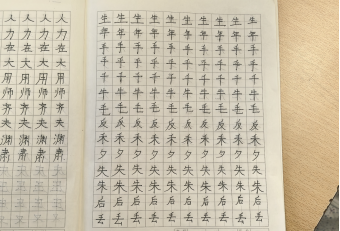 人 人 人 人
力 力 力 力
在 在 在 在
大 大 大 大
用 用 用 用
师 师 师 师
齐 齐 齐 齐
夹 夹 夹 夹
渊 渊 渊 渊
肃 肃 肃 肃
生 生 生 生 生 生 生 生 生 生
年 年 年 年 年 年 年 年 年 年
手 手 手 手 手 手 手 手 手 手
千 千 千 千 千 千 千 千 千 千
牛 牛 牛 牛 牛 牛 牛 牛 牛 牛
毛 毛 毛 毛 毛 毛 毛 毛 毛 毛
反 反 反 反 反 反 反 反 反 反
禾 禾 禾 禾 禾 禾 禾 禾 禾 禾
夕 夕 夕 夕 夕 夕 夕 夕 夕 夕
失 失 失 失 失 失 失 失 失 失
朱 朱 朱 朱 朱 朱 朱 朱 朱 朱
后 后 后 后 后 后 后 后 后 后
丢 丢 丢 丢 丢 丢 丢 丢 丢 丢